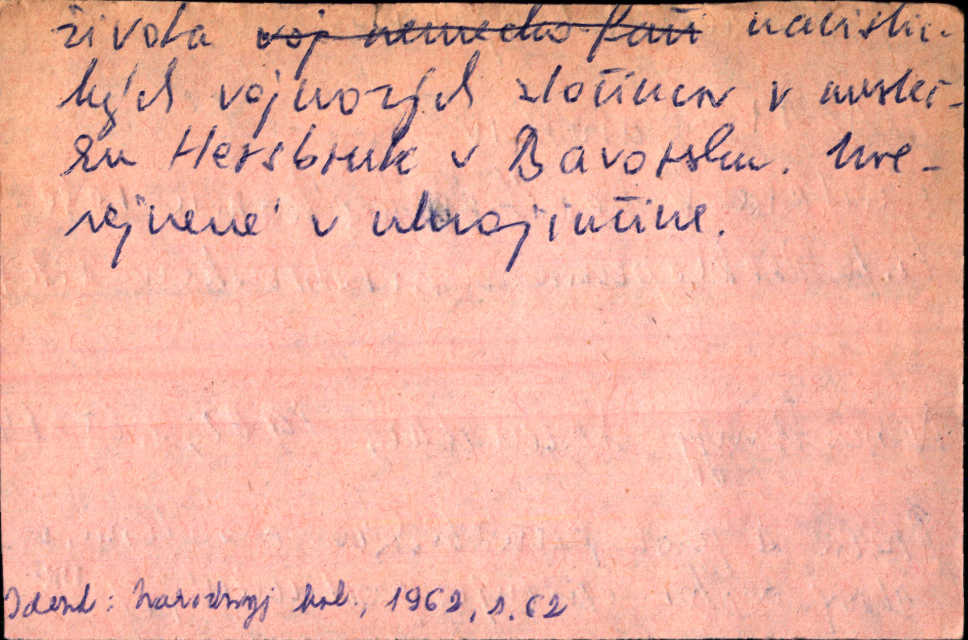 života voj nemecko faši nacistic-
kých vojnových zločincov v nürkič-
ku Hersbruk v Bavorsku. Uve-
rejnené v ukrajinčine.
Ident: Narodnyj kal., 1962, s. 62